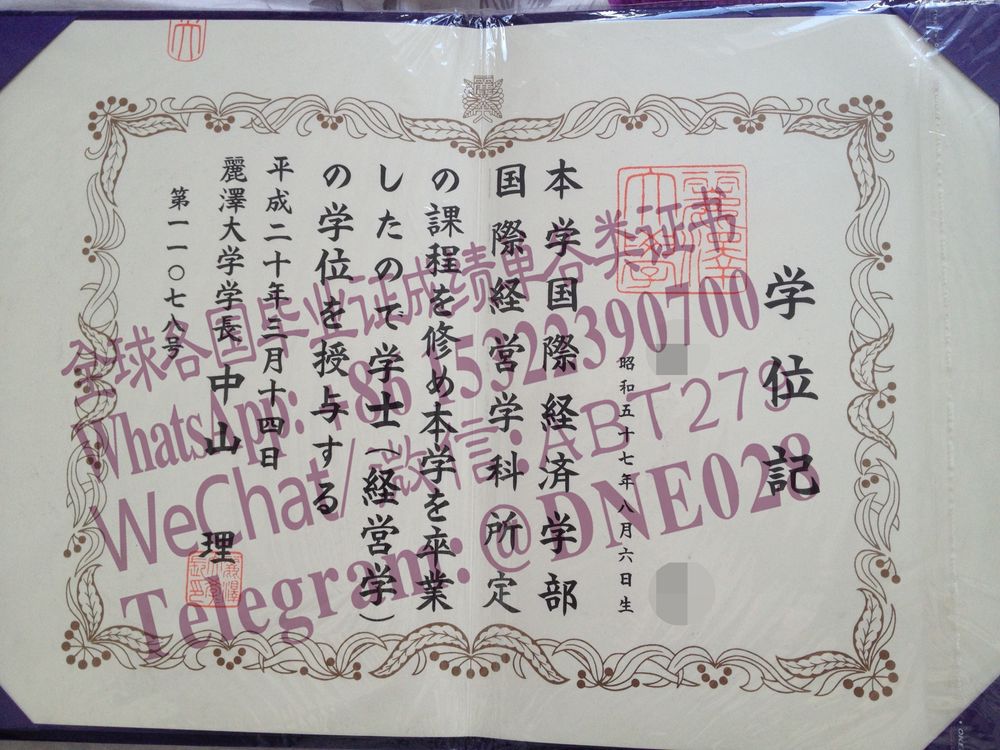 学位記
昭和五十七年八月六日生
本学国際経済学部
国際経営学科所定
の課程を修め本学を卒業
したので学士（経営学）
の学位を授与する
平成二十年三月十四日
麗澤大学学長 中山 理
第一一〇七八号
全球各国毕业证成绩单各类证书
WhatsApp: +86 15322390700
WeChat/微信:
Telegram: @DNE028